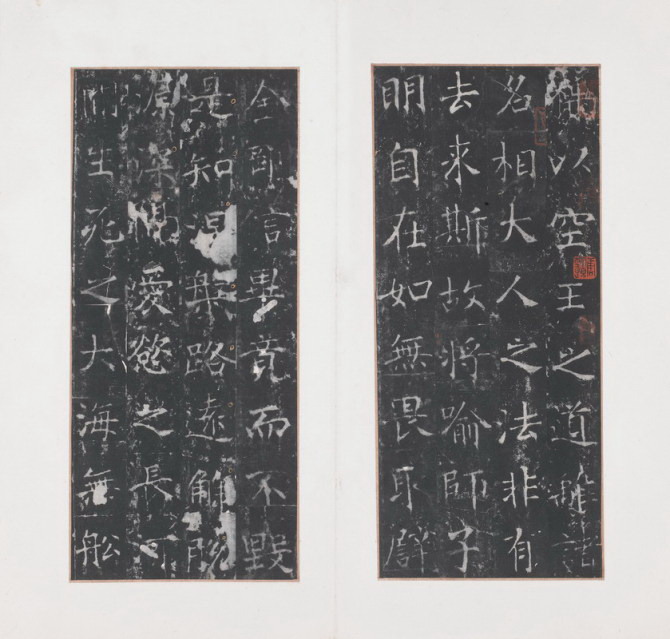 以空王之道離諸
名相大人之法非有
去来斯故將喻師子
明自在如無畏取譬
金剛信畢竟而不毀
是知涅槃路遠解脫
源深隔愛慾之長河
生死之大海無舩